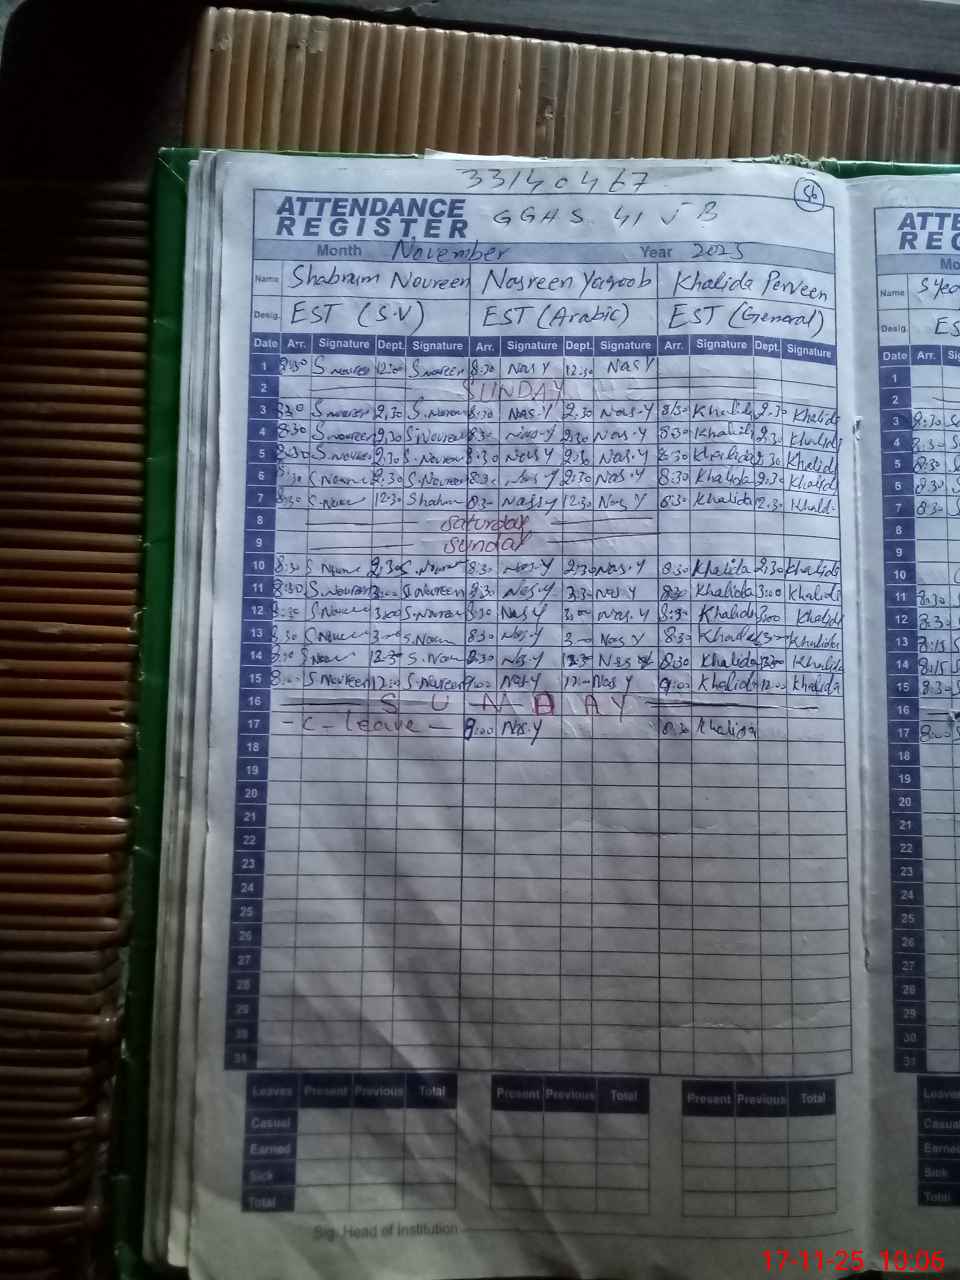 33140467
56
ATTENDANCE REGISTER
GGHS 41 JB
Month November Year 2025
Name Shabnum Noureen Nasreen Yaqoob Khalida Perveen
Desig. EST (S.V) EST (Arabic) EST (General)
Date Arr. Signature Dept. Signature Arr. Signature Dept. Signature Arr. Signature Dept. Signature
1 8:30 S Noureen 12:00 S Noureen 8:30 Nas Y 12:30 Nas Y
2 SUNDAY
3 8:30 S Noureen 2:30 S. Noureen 8:30 Nas-Y 2:30 Nas-Y 8:30 Khalida 2:30 Khalida
4 8:30 S Noureen 2:30 S. Noureen 8:30 Nas-Y 2:30 Nas-Y 8:30 Khalida 2:30 Khalida
5 8:30 S. Noureen 2:30 S. Noureen 8:30 Nas Y 2:30 Nas-Y 8:30 Khalida 2:30 Khalida
6 8:30 S Noureen 2:30 S. Noureen 8:30 Nas Y 2:30 Nas-Y 8:30 Khalida 2:30 Khalida
7 8:30 S. Noureen 12:30 8:30 Nas Y 12:30 Nas Y 8:30 Khalida 12:30
8 Saturday
9 Sunday
10 8:30 S Noureen 2:30 8:30 Nas-Y 2:30 Nas-Y 8:30 Khalida 2:30 Khalida
11 8:30 S. Noureen 3:00 S. Noureen 8:30 Nas-Y Nas Y 8:30 Khalida 3:00 Khalida
12 8:30 S. Noureen 3:00 S. Noureen 8:30 Nas Y 3:00 Nas-Y 8:30 Khalida 3:00 Khalida
13 8:30 S. Noureen 3:00 S. Noureen 8:30 Nas-Y 3:00 Nas Y 8:30 Khalida 3:00 Khalida
14 12:30 S. Noureen 8:30 Nas-Y 12:30 8:30 Khalida Khalida
15 S Noureen 12:00 S. Noureen 9:00 Nas-Y 12:00 Nas Y 9:00 Khalida 12:00 Khalida
16 SUNDAY
17 - C - Leave - 9:00 Nas-Y 8:30 Khalida
18
19
20
21
22
23
24
25
26
27
28
29
30
31
Leaves Present Previous Total Present Previous Total Present Previous Total
Casual
Earned
Sick
Total
Sig. Head of Institution
ATTE
REG
Mo
Name
Desig. ES
Date Arr. S
1
2
3 8:30
4 8:30
5 8:30
6 8:30
7 8:30
8
9
10
11 8:30
12 8:30
13 8:15
14 8:15
15 8:30
16
17 8:00
18
19
20
21
22
23
24
25
26
27
28
29
30
31
Leaves
Casual
Earned
Sick
Total
17-11-25 10:06